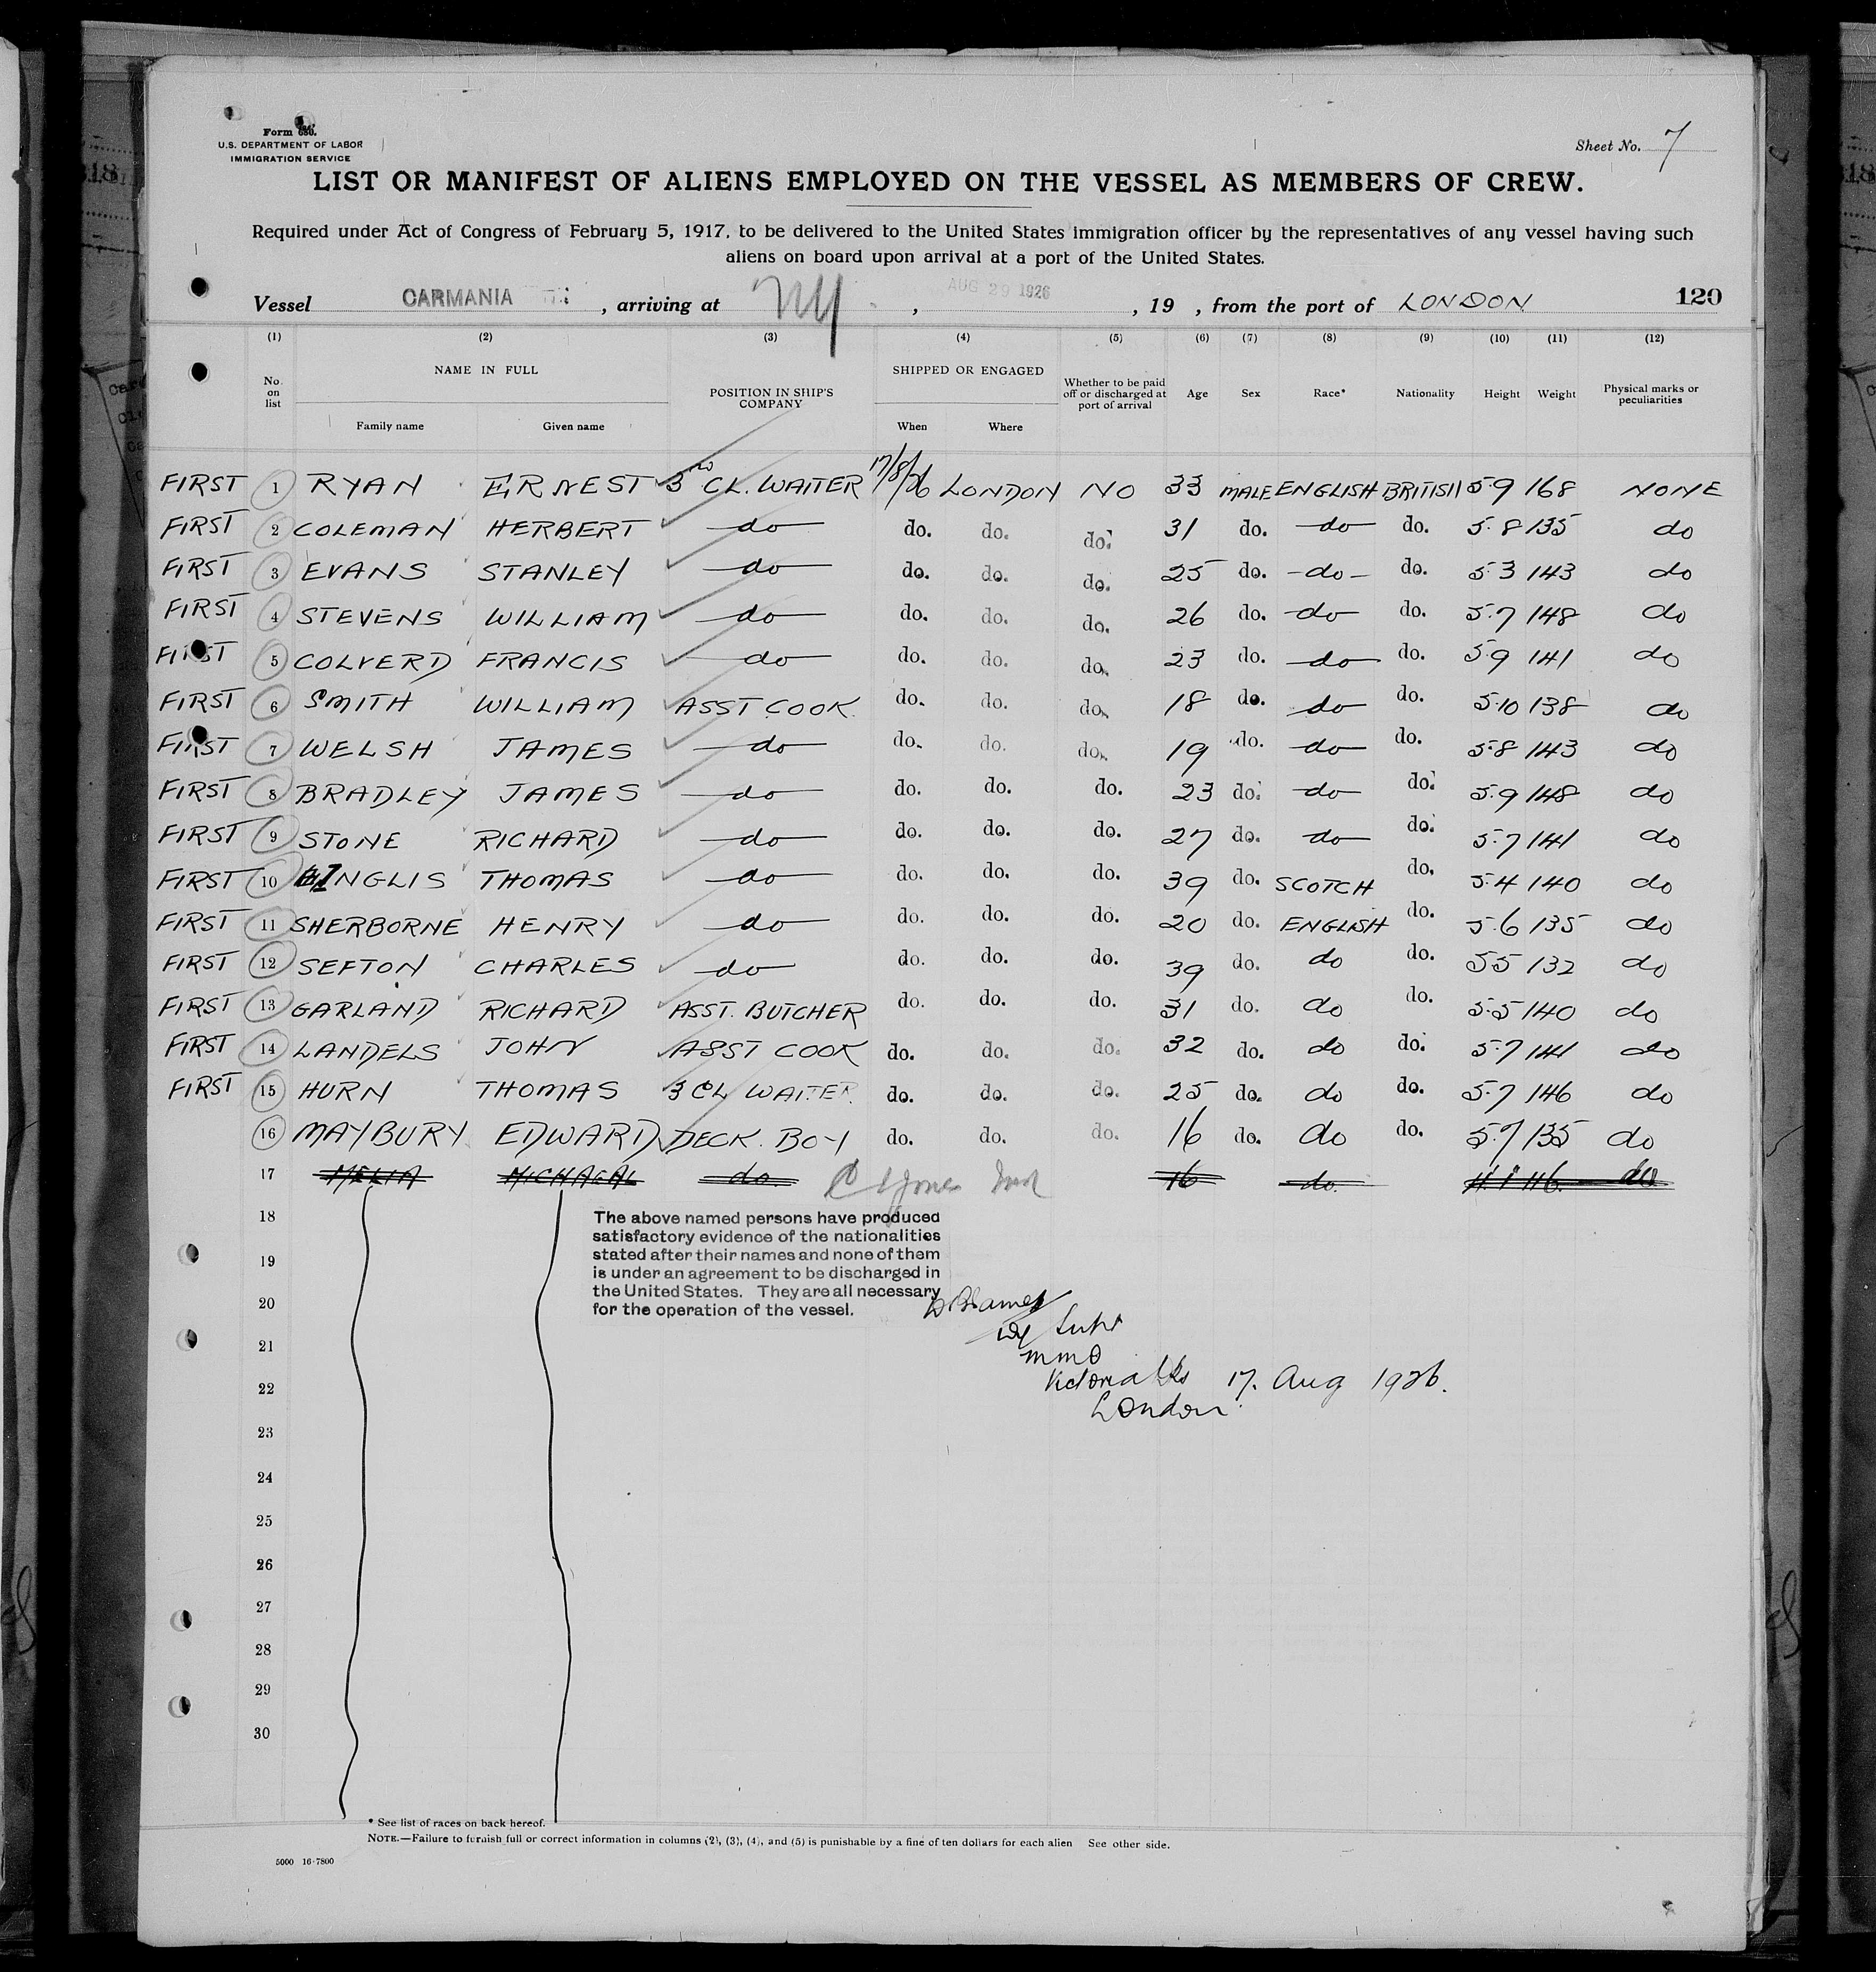 Form 680.
U.S. DEPARTMENT OF LABOR
IMMIGRATION SERVICE
Sheet No. 7
LIST OR MANIFEST OF ALIENS EMPLOYED ON THE VESSEL AS MEMBERS OF CREW.
Required under Act of Congress of February 5, 1917, to be delivered to the United States immigration officer by the representatives of any vessel having such
aliens on board upon arrival at a port of the United States.
Vessel CARMANIA, arriving at NY, AUG 29 1926, 19 , from the port of LONDON 120
(1) (2) (3) (4) (5) (6) (7) (8) (9) (10) (11) (12)
No. on list NAME IN FULL Family name Given name POSITION IN SHIP'S COMPANY SHIPPED OR ENGAGED When Where Whether to be paid off or discharged at port of arrival Age Sex Race* Nationality Height Weight Physical marks or peculiarities
FIRST 1 RYAN ERNEST 3RD CL. WAITER 17/8/26 LONDON NO 33 MALE ENGLISH BRITISH 5.9 168 NONE
FIRST 2 COLEMAN HERBERT do do. do. do. 31 do. do do. 5.8 135 do
FIRST 3 EVANS STANLEY do do. do. do. 25 do. do do. 5.3 143 do
FIRST 4 STEVENS WILLIAM do do. do. do. 26 do. do do. 5.7 148 do
FIRST 5 COLVERD FRANCIS do do. do. do. 23 do. do do. 5.9 141 do
FIRST 6 SMITH WILLIAM ASST COOK do. do. do. 18 do. do do. 5.10 138 do
FIRST 7 WELSH JAMES do do. do. do. 19 do. do do. 5.8 143 do
FIRST 8 BRADLEY JAMES do do. do. do. 23 do. do do. 5.9 148 do
FIRST 9 STONE RICHARD do do. do. do. 27 do. do do. 5.7 141 do
FIRST 10 INGLIS THOMAS do do. do. do. 39 do. SCOTCH do. 5.4 140 do
FIRST 11 SHERBORNE HENRY do do. do. do. 20 do. ENGLISH do. 5.6 135 do
FIRST 12 SEFTON CHARLES do do. do. do. 39 do. do do. 5.5 132 do
FIRST 13 GARLAND RICHARD ASST. BUTCHER do. do. do. 31 do. do do. 5.5 140 do
FIRST 14 LANDELS JOHN ASST COOK do. do. do. 32 do. do do. 5.7 141 do
FIRST 15 HURN THOMAS 3 CL WAITER do. do. do. 25 do. do do. 5.7 146 do
16 MAYBURY EDWARD DECK. BOY do. do. do. 16 do. do do. 5.7 135 do
17 MELIA MICHAEAL do 16 do 116 do
18
The above named persons have produced
satisfactory evidence of the nationalities
stated after their names and none of them
is under an agreement to be discharged in
the United States. They are all necessary
for the operation of the vessel.
19
20
Supt
21
MMO
22
Victoria Dks 17. Aug 1926.
London.
23
24
25
26
27
28
29
30
* See list of races on back hereof.
NOTE.—Failure to furnish full or correct information in columns (2), (3), (4), and (5) is punishable by a fine of ten dollars for each alien See other side.
5000 16-7800